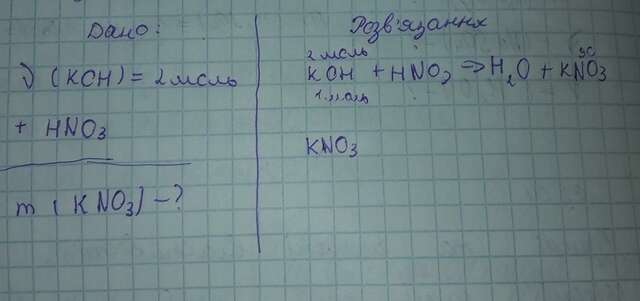 Дано:
ν (KOH) = 2 моль
+ HNO3
m (KNO3) – ?
Розв'язання
2 моль
KOH + HNO3 => H2O + KNO3
1 моль
KNO3